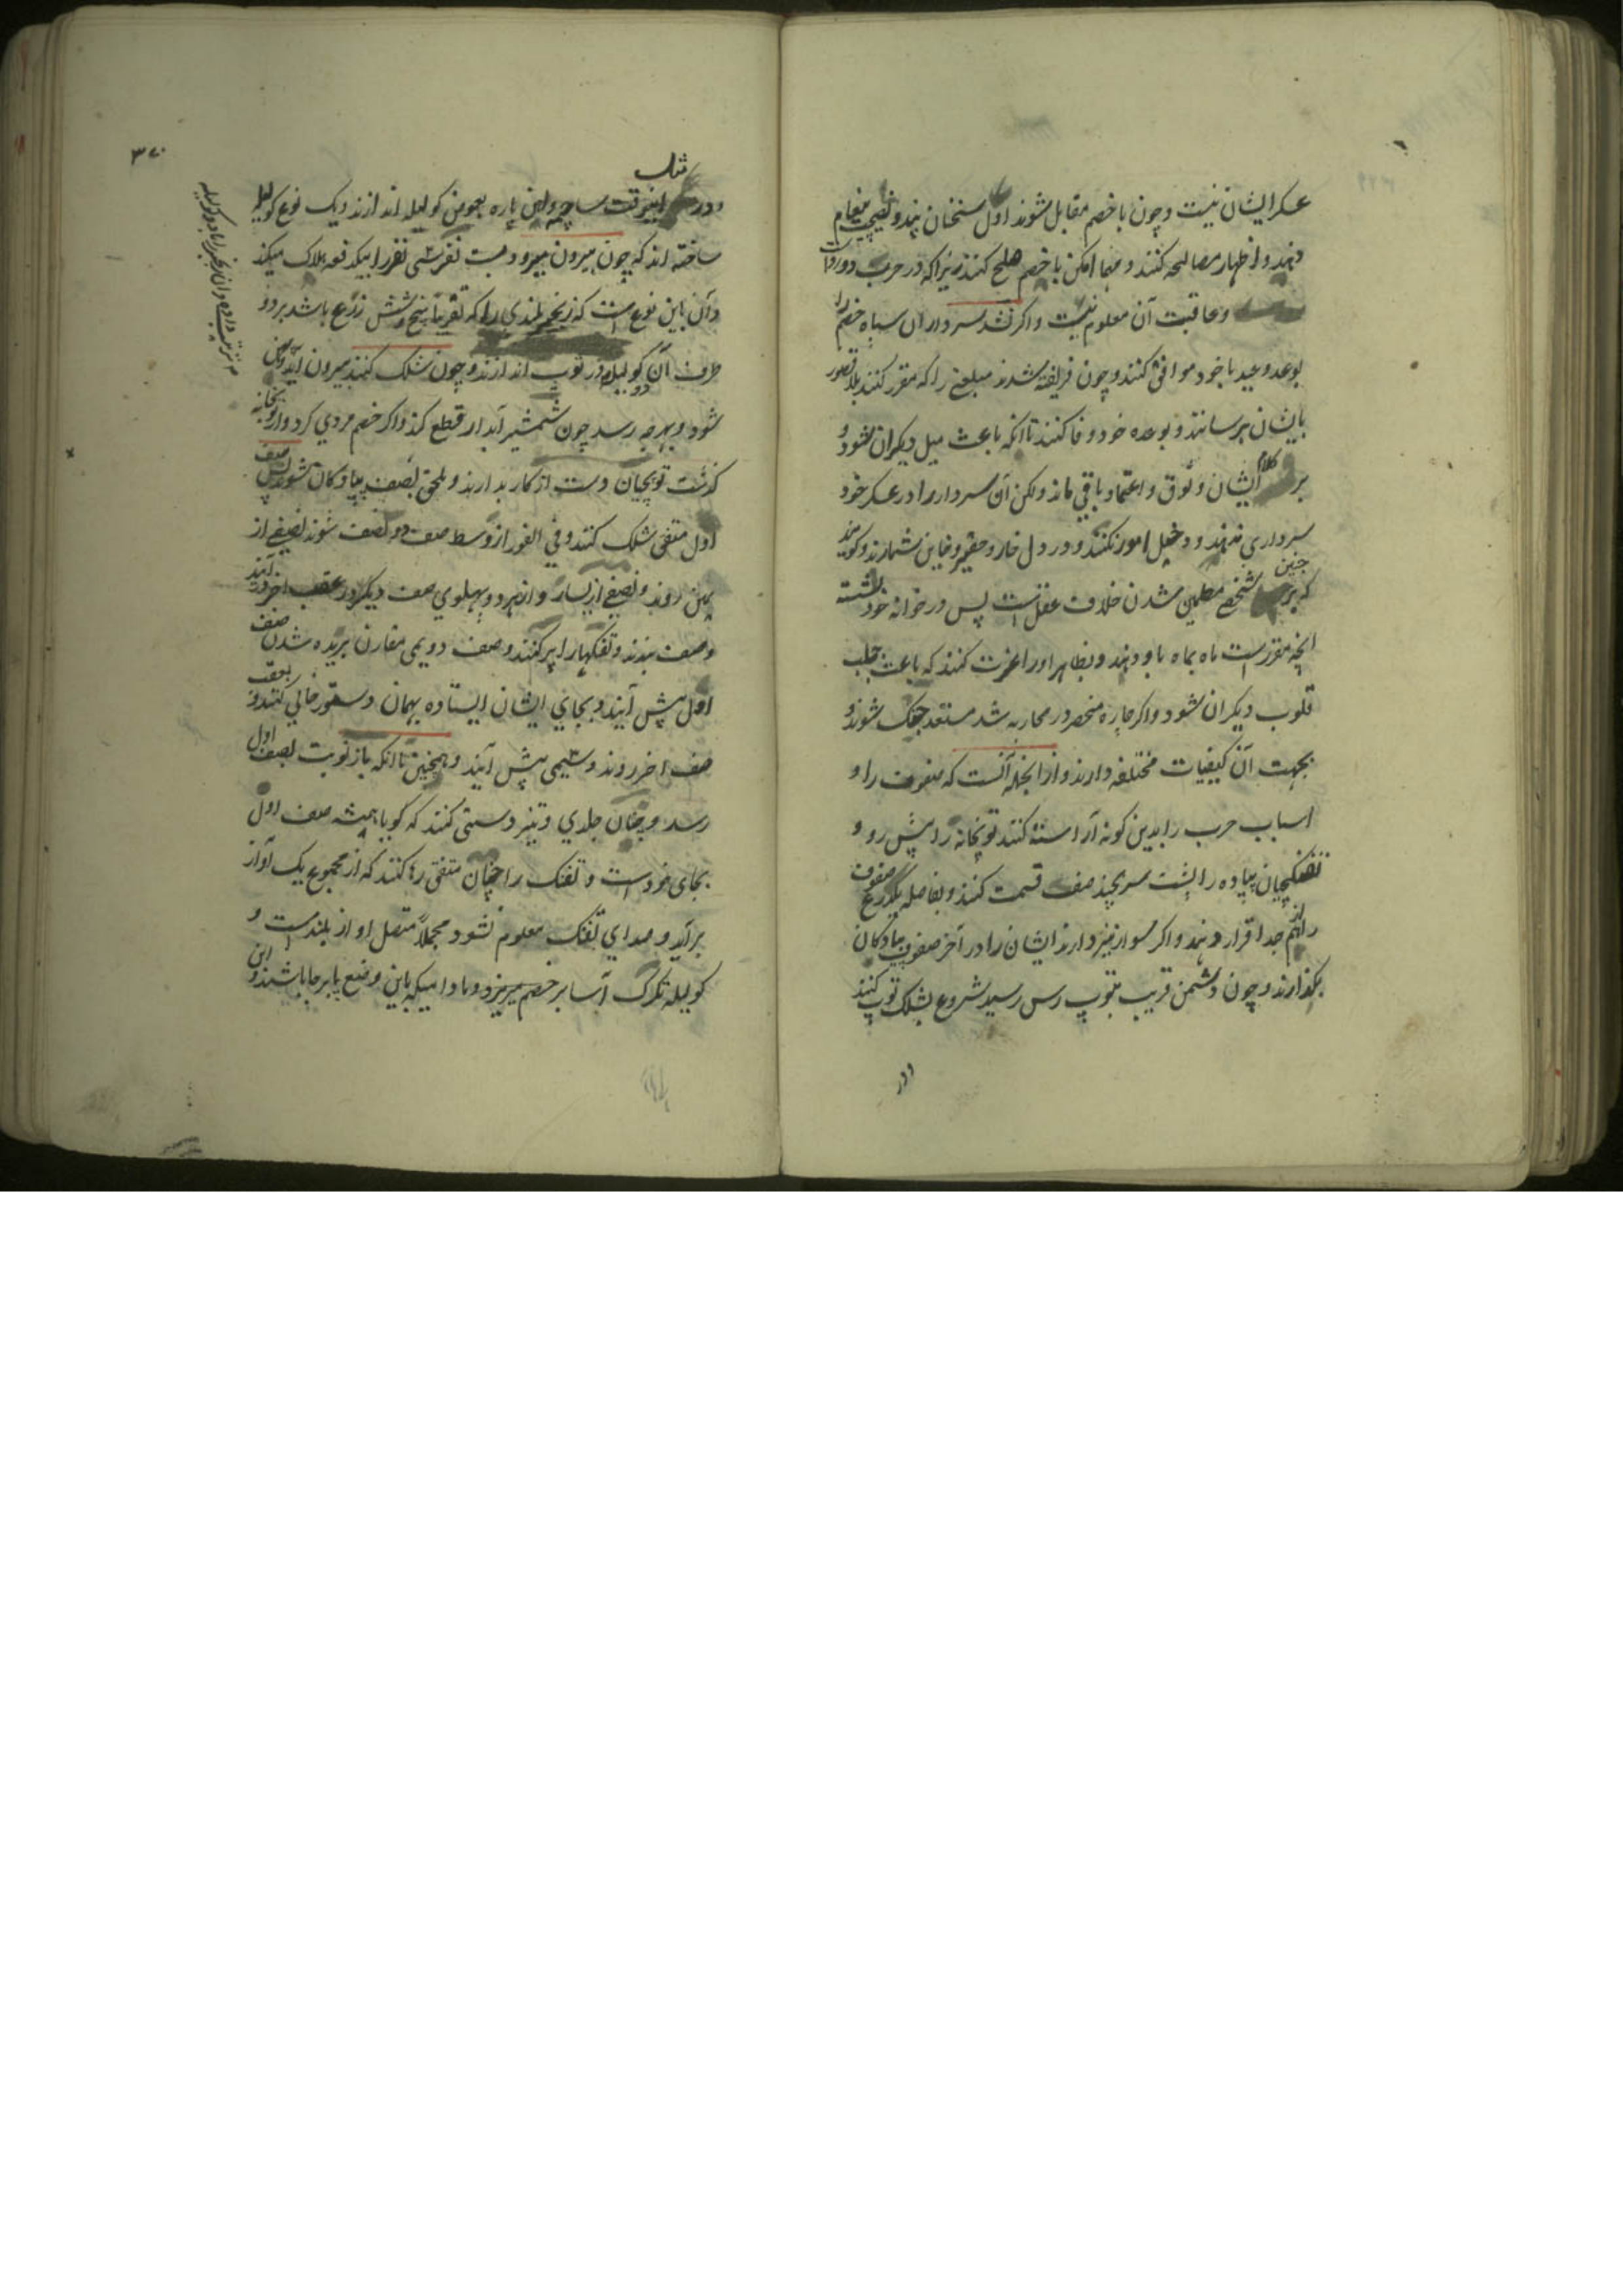 عسکر ایشان نیست و چون با خصم مقابل شوند اول سخنان پند و نصیحت پیغام
دهند و اظهار مصالحه کنند و مهما امکن با خصم صلح کنند زیرا که در حرب دو
و عاقبت آن معلوم نیست و اگر نشد سرداران سپاه خصم را
بوعد و عید با خود موافق کنند و چون فریفته شدند مبلغی را که مقرر کنند بلا قصور
بایشان برسانند و بوعده خود وفا کنند تا انکه باعث میل دیکران شود و
بر کلام ایشان وثوق و اعتماد باقی ماند ولکن آن سردار را در عسکر خود
سرداری ندهند و دخیل امور نکنند و در دل خار و حقیر و خاین شمارند و کویند
که بر چنین شخصی مطمئن شدن خلاف عقلست پس در خوانه خود نشسته
انچه مقررست ماه بماه باو دهند و بظاهر او را عزت کنند که باعث جلب
قلوب دیکران شود و اکر چاره منحصر در محاربه شد مستعد جنک شوند و
بجهت آن کیفیات مختلفه دارند و از انجمله آنست که صفوف را و
اسباب حرب را بدین کونه آراسته کنند توپخانه را پیش رو و
تفنکچیان پیاده را پشت سر بچند صف قسمت کنند و بفاصله یکذرع صفوف
را از هم جدا قرار دهند و اکر سوار نیز دارند ایشان را در آخر صفوف پیادکان
بکذارند و چون دشمن قریب بتوپ رس رسید شروع بشلک توپ کنند
و در
۳۷۰
و در اینوقت ساچمه و آهن پاره بعوض کولیله اندازند و یک نوع کولیله
ساخته اند که چون بیرون میرود بیست نفر سی نفر را بیکدفعه هلاک میکند
و آن باین نوع است که زنجیر بلندی را که تقریبا پنج و شش زرع باشد بر دو
طرف آن دو کولیله در توپ اندازند و چون شلک کنند بیرون آید و پهن
شود و بهر چه رسد چون شمشیر آبدار قطع کند و اکر خصم مردی کرد و از توپخانه
کذشت توپچیان دست از کار بدارند و ملحق بصف پیادکان شوند پس صف
اول متفق شلک کنند و فی الفور از وسط صف دو نصف شوند نصفی از
یمین روند و نصفی از یسار و از هر دو پهلوی صف دیکر در عقب اخر در آیند
و صف بندند و تفنکها را پر کنند و صف دویمی مقارن بریده شدن صف
اول پیش آیند و بجای ایشان ایستاده بهمان دستور خالی کنند و بعقب
صف اخر روند و سیمی پیش آیند و همچنین تا انکه باز نوبت بصف اول
رسد و چنان جلدی و تیز دستی کنند که کویا همیشه صف اول
بجای خودست و تفنک را چنان متفق رها کنند که از مجموع یک آواز
برآید و صدای تفنک معلوم نشود مجملا متصل اواز بلندست و
کولیله تکرک آسا بر خصم میریزد و مادامیکه باین وضع پابرجا باشند و این